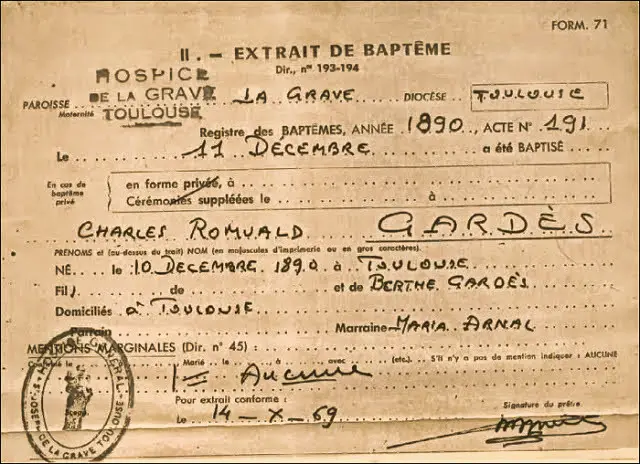 FORM. 71
II. — EXTRAIT DE BAPTÊME
Dir., nos 193-194
HOSPICE
DE LA GRAVE
TOULOUSE
PAROISSE LA GRAVE DIOCÈSE TOULOUSE
Maternité
Registre des BAPTÊMES, ANNÉE 1890, ACTE N° 191
Le 11 DECEMBRE a été BAPTISÉ
En cas de baptême privé
en forme privée, à
Cérémonies suppléées le à
CHARLES ROMUALD GARDÈS
PRÉNOMS et (au-dessus du trait) NOM (en majuscules d'imprimerie ou en gros caractères).
NÉ le 10 DECEMBRE 1890 à TOULOUSE
Fils de et de BERTHE GARDÈS
Domiciliés à TOULOUSE
Parrain Marraine MARIA ARNAL
MENTIONS MARGINALES (Dir. n° 45) :
Marié le à avec (etc.). S'il n'y a pas de mention indiquer : AUCUNE
Aucune
Pour extrait conforme :
Le 14 - X - 69
Signature du prêtre
ST JOSEPH DE LA GRAVE TOULOUSE